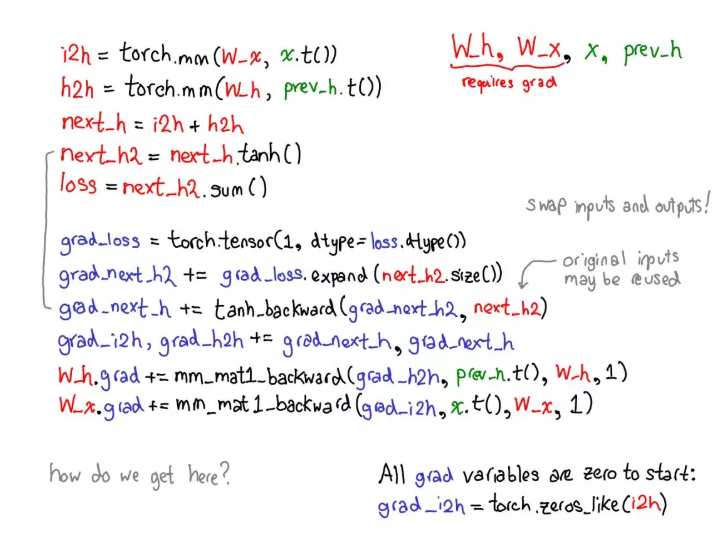 i2h = torch.mm(W_x, x.t())
h2h = torch.mm(W_h, prev_h.t())
next_h = i2h + h2h
next_h2 = next_h.tanh()
loss = next_h2.sum()
W_h, W_x, x, prev_h
requires grad
swap inputs and outputs!
grad_loss = torch.tensor(1, dtype=loss.dtype())
grad_next_h2 += grad_loss.expand(next_h2.size())
original inputs
may be reused
grad_next_h += tanh_backward(grad_next_h2, next_h2)
grad_i2h, grad_h2h += grad_next_h, grad_next_h
W_h.grad += mm_mat1_backward(grad_h2h, prev_h.t(), W_h, 1)
W_x.grad += mm_mat1_backward(grad_i2h, x.t(), W_x, 1)
how do we get here?
All grad variables are zero to start:
grad_i2h = torch.zeros_like(i2h)